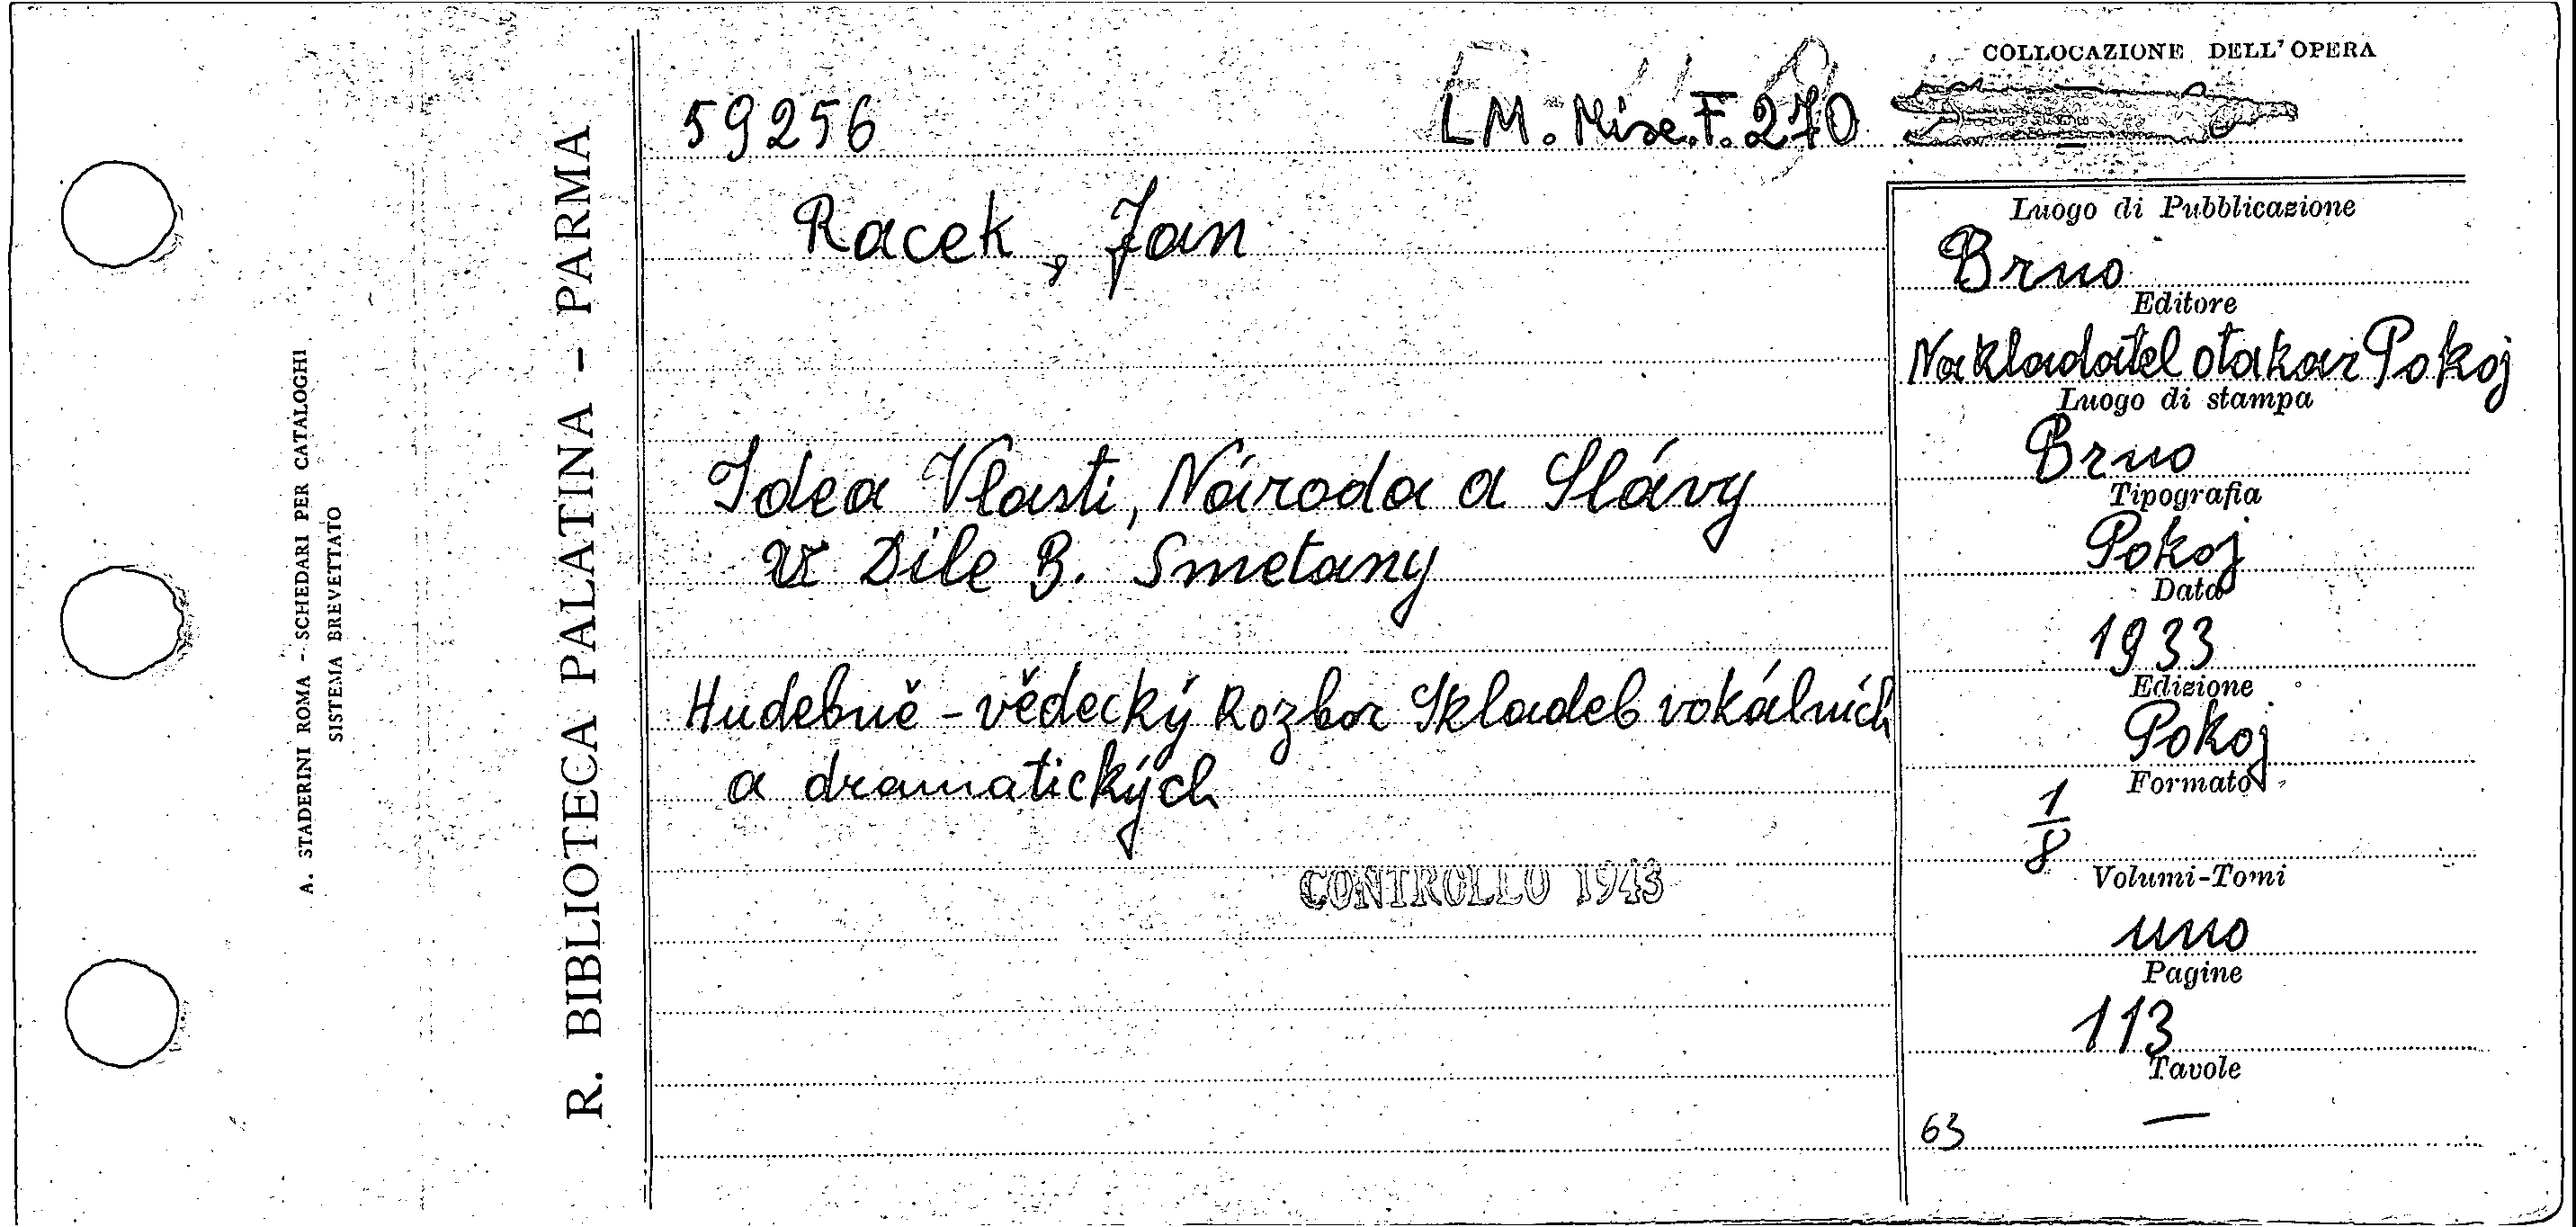 COLLOCAZIONE DELL'OPERA
59256
LM. Misc.F. 270
Racek, Jan
Idea Vlasti, Národa a Slávy
V Dile B. Smetany
Hudebně - vědecký Rozbor Skladeb vokálních
a dramatických
CONTROLLO 1943
Luogo di Pubblicazione
Brno
Editore
Nakladatel otakar Pokoj
Luogo di stampa
Brno
Tipografia
Pokoj
Data
1933
Edizione
Pokoj
Formato
1/8
Volumi-Tomi
uno
Pagine
113
Tavole
—
63
R. BIBLIOTECA PALATINA - PARMA
A. STADERINI ROMA - SCHEDARI PER CATALOGHI
SISTEMA BREVETTATO